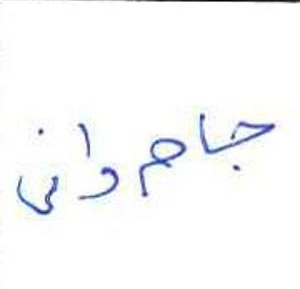 جام وانی